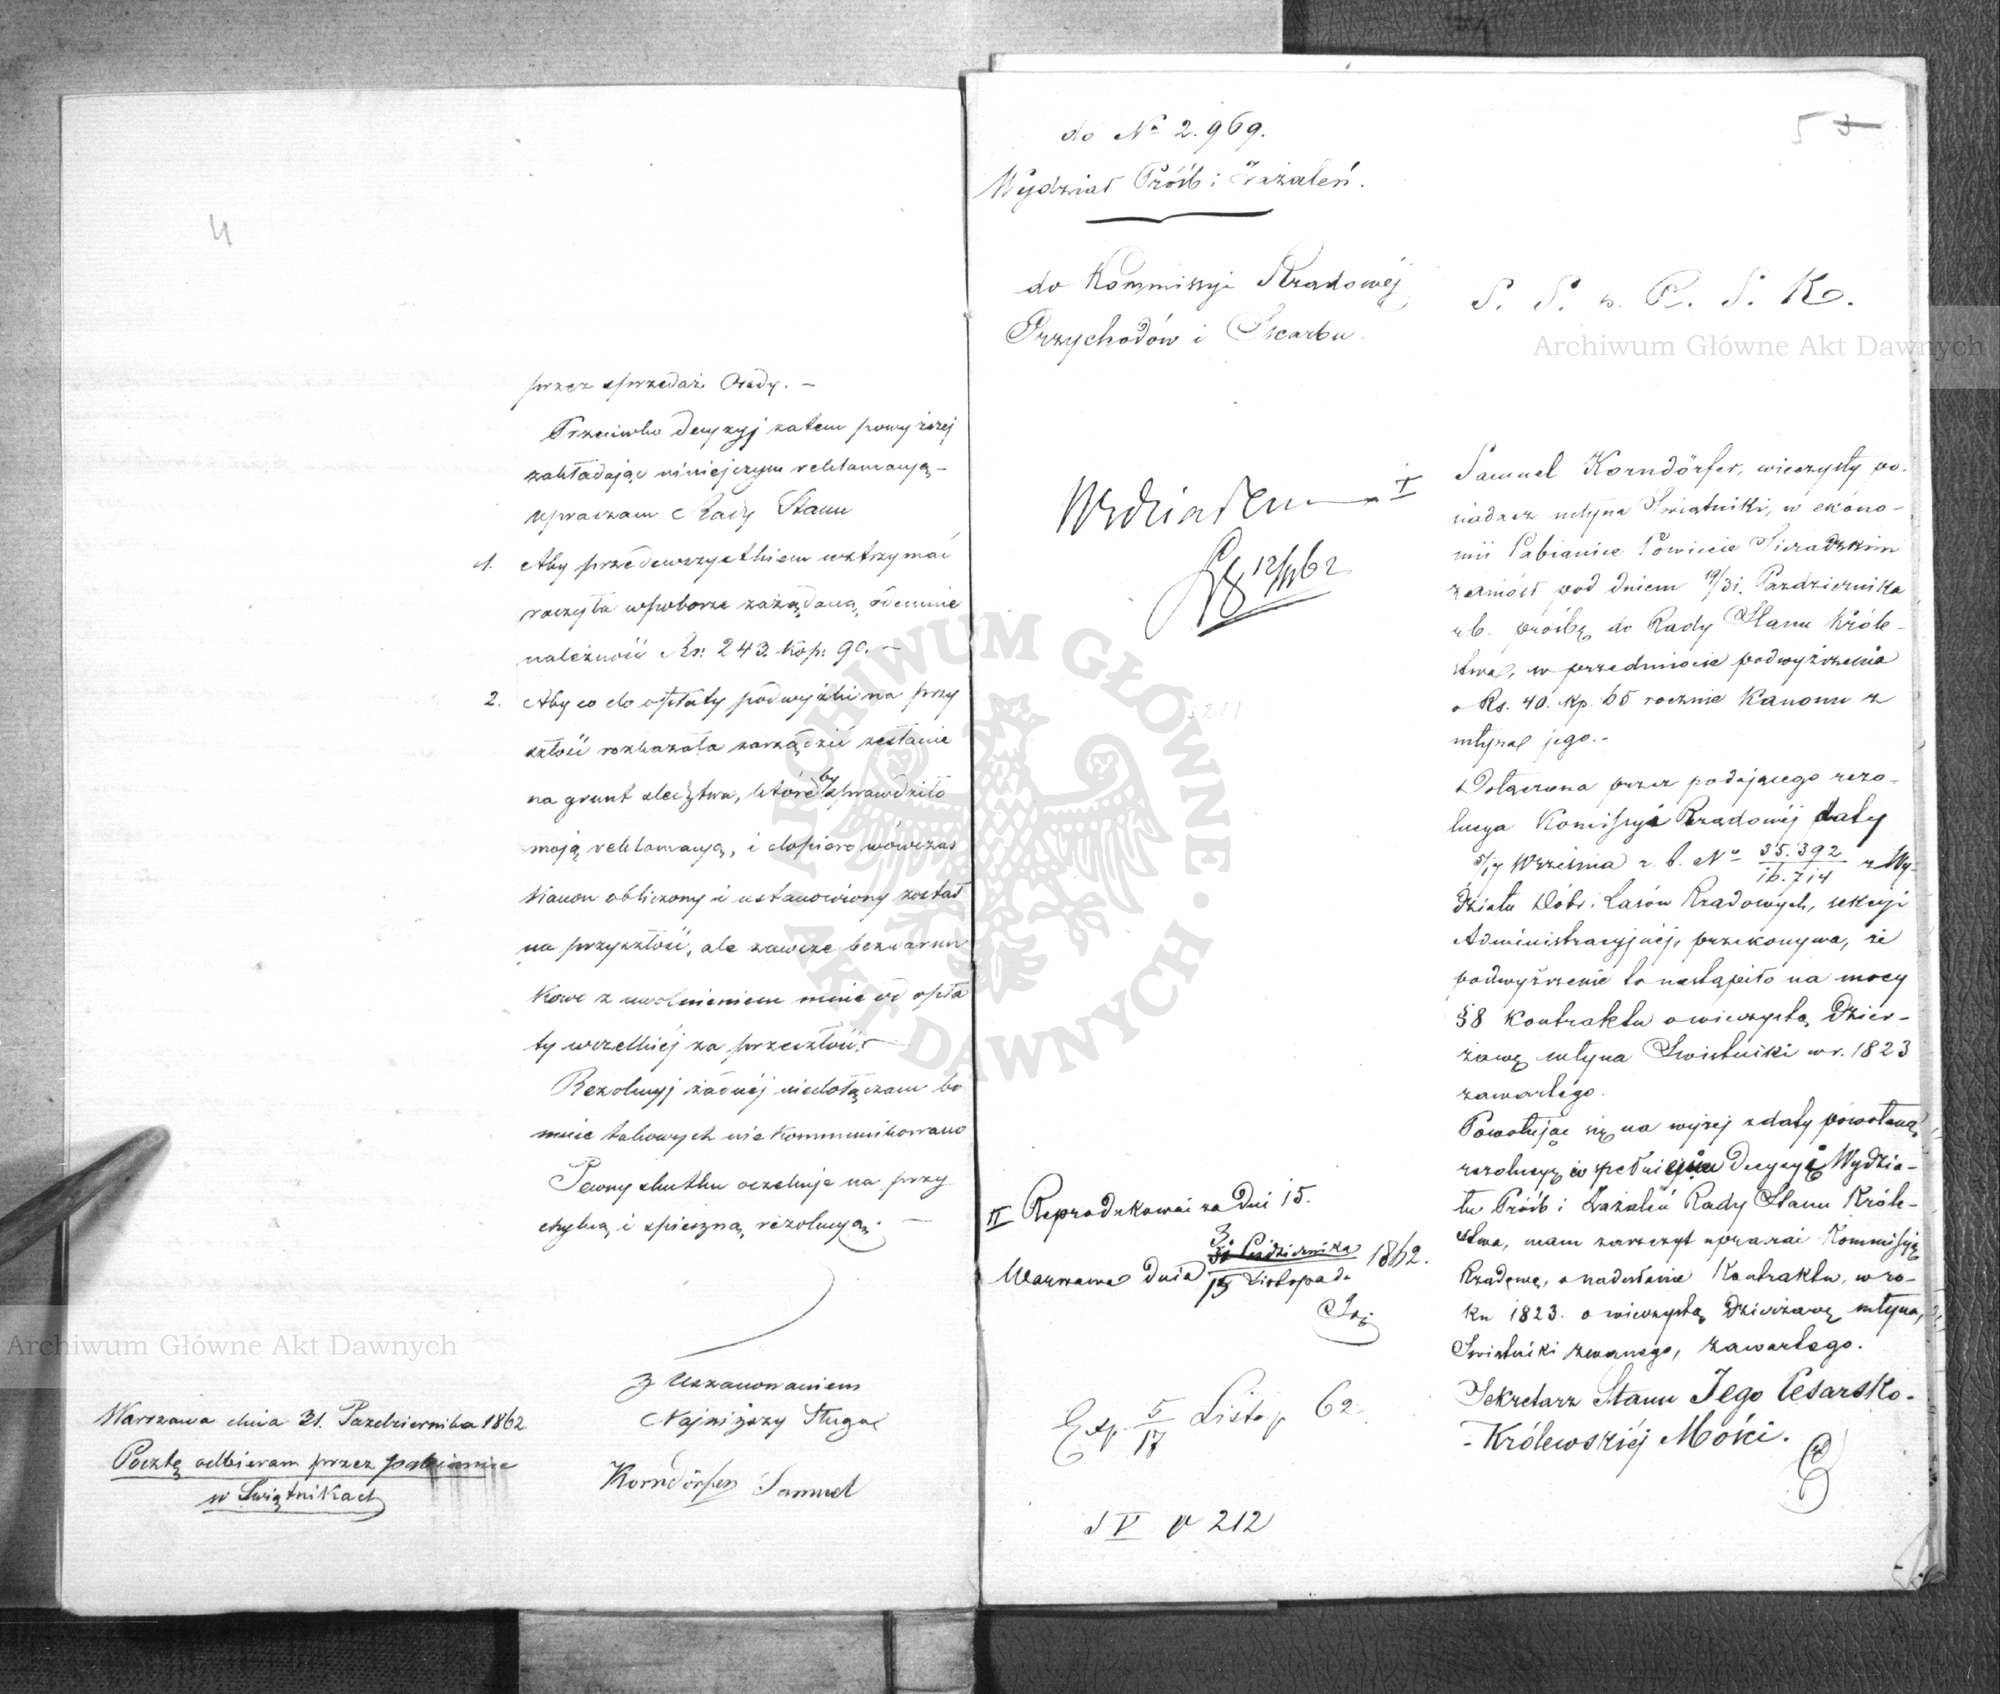 4
przez sprzedaż Osady. –
Przeciwko decyzyj zatem powyższej
zakładając niniejszym reklamacyą –
upraszam Rady Stanu
1. Aby przedewszystkiem wstrzymać
raczyła w poborze zażądaną odemnie
należność Rs: 243. kop: 90. –
2. Aby co do opłaty podwyżki na przy
szłość rozkazała zarządzić zesłanie
na grunt sledztwa, które by sprawdziło
moją reklamacyą, i dopiero wówczas
Kanon obliczony i ustanowiony został
na przyszłość, ale zawsze bezwarun
kowo z uwolnieniem mnie od opła
ty wszelkiej za przeszłość. –
Rezolucyj żadnéj niedołączam bo
mnie takowych nie kommunikowano
Pewny skutku oczekuje na przy
chylną i spieszną rezolucyą. –
Z Uszanowaniem
Najniższy Sługa
Korndörfer Samuel
Warszawa dnia 31. Pazdziernika 1862
Pocztę odbieram przez Pabianice
w Świątnikach
do No 2.969.
Wydział Próśb i Zażaleń.
do Kommissyi Rządowéj
Przychodów i Skarbu
Wedziałem I
12/II 62
II Reprodukować za dni 15.
Warszawa dnia 3/15 31 Października Listopada 1862.
Exp. 5/17 Listop 62
S V v 212
5 3
S. S. w. P. S. K.
Samuel Korndörfer, wieczysty po-
siadacz młyna Świątniki, w ekono-
mii Pabianice Powiecie Sieradzkim
zaniósł pod dniem 19/31. Pazdziernika
r.b. prośbę do Rady Stanu Króle-
stwa, w przedmiocie podwyższenia
o Rs. 40. kp. 65 rocznie Kanonu z
młyna jego. –
Dołączona przez podającego rezo-
lucya Komissyi Rządowéj daty
5/17 Września r. b. No 35.392/16.714 z Wy-
działu Dóbr i Lasów Rządowych, sekcyi
Administracyjnéj, przekonywa, że
podwyższenie to nastąpiło na mocy
§8 kontraktu o wieczystą dzier-
żawę młyna Świątniki w r. 1823
zawartego.
Powołując się na wyżej z daty powołaną
rezolucyę w spełnieniu Decyzyi Wydzia-
łu Próśb i Zażaleń Rady Stanu Króle-
stwa, mam zaszczyt upraszać Kommissyę
Rządową, o nadesłanie Kontraktu, w ro-
ku 1823. o wieczystą dzierżawę młyna,
Świątniki zwanego, zawartego.
Sekretarz Stanu Jego Cesarsko-
- Królewskiéj Mości.
Archiwum Główne Akt Dawnych
Archiwum Główne Akt Dawnych
ARCHIWUM GŁÓWNE
AKT DAWNYCH